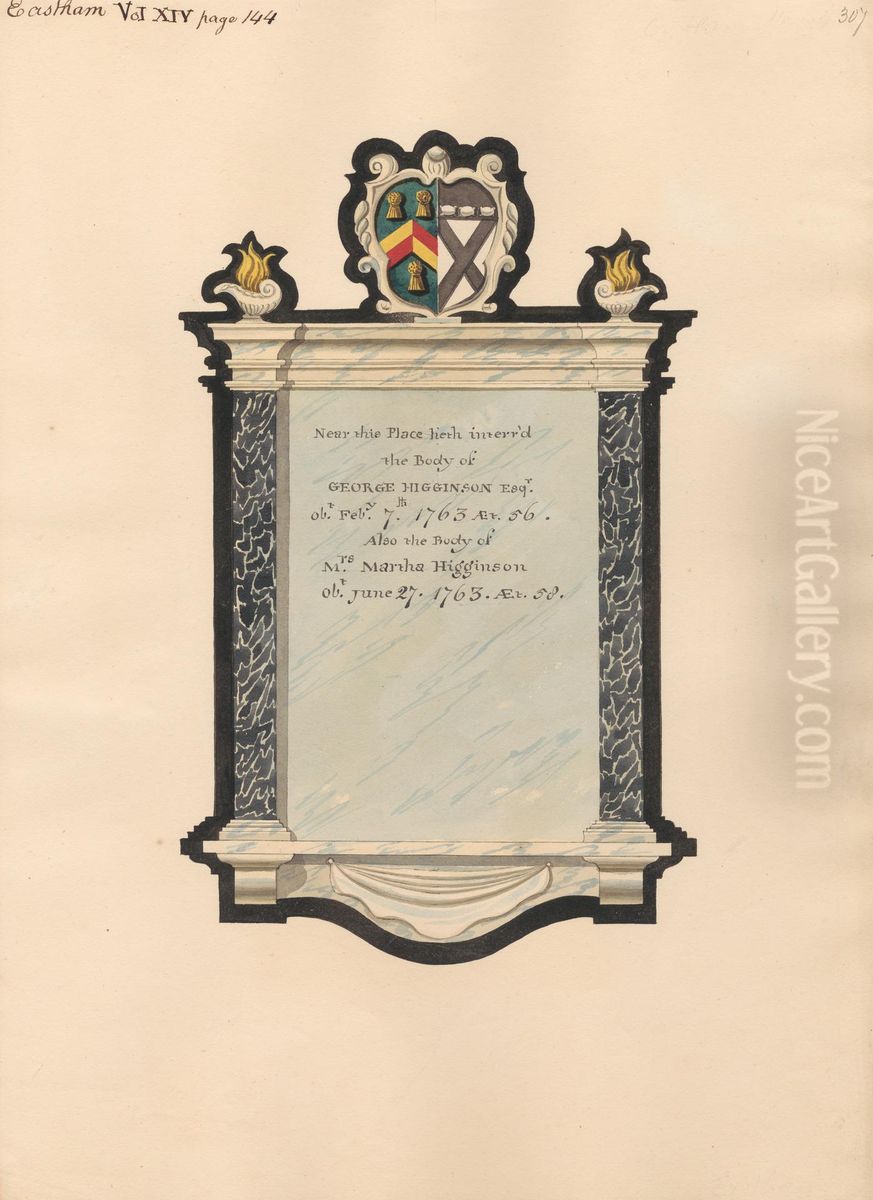 Eastham Vol XIV page 144
307
Near this Place lieth interr'd
the Body of
GEORGE HIGGINSON Esqr.
obt. Feby. 7th. 1763 Æt. 56.
Also the Body of
Mrs. Martha Higginson
Obt. June 27. 1763. Æt. 58.
NiceArtGallery.com